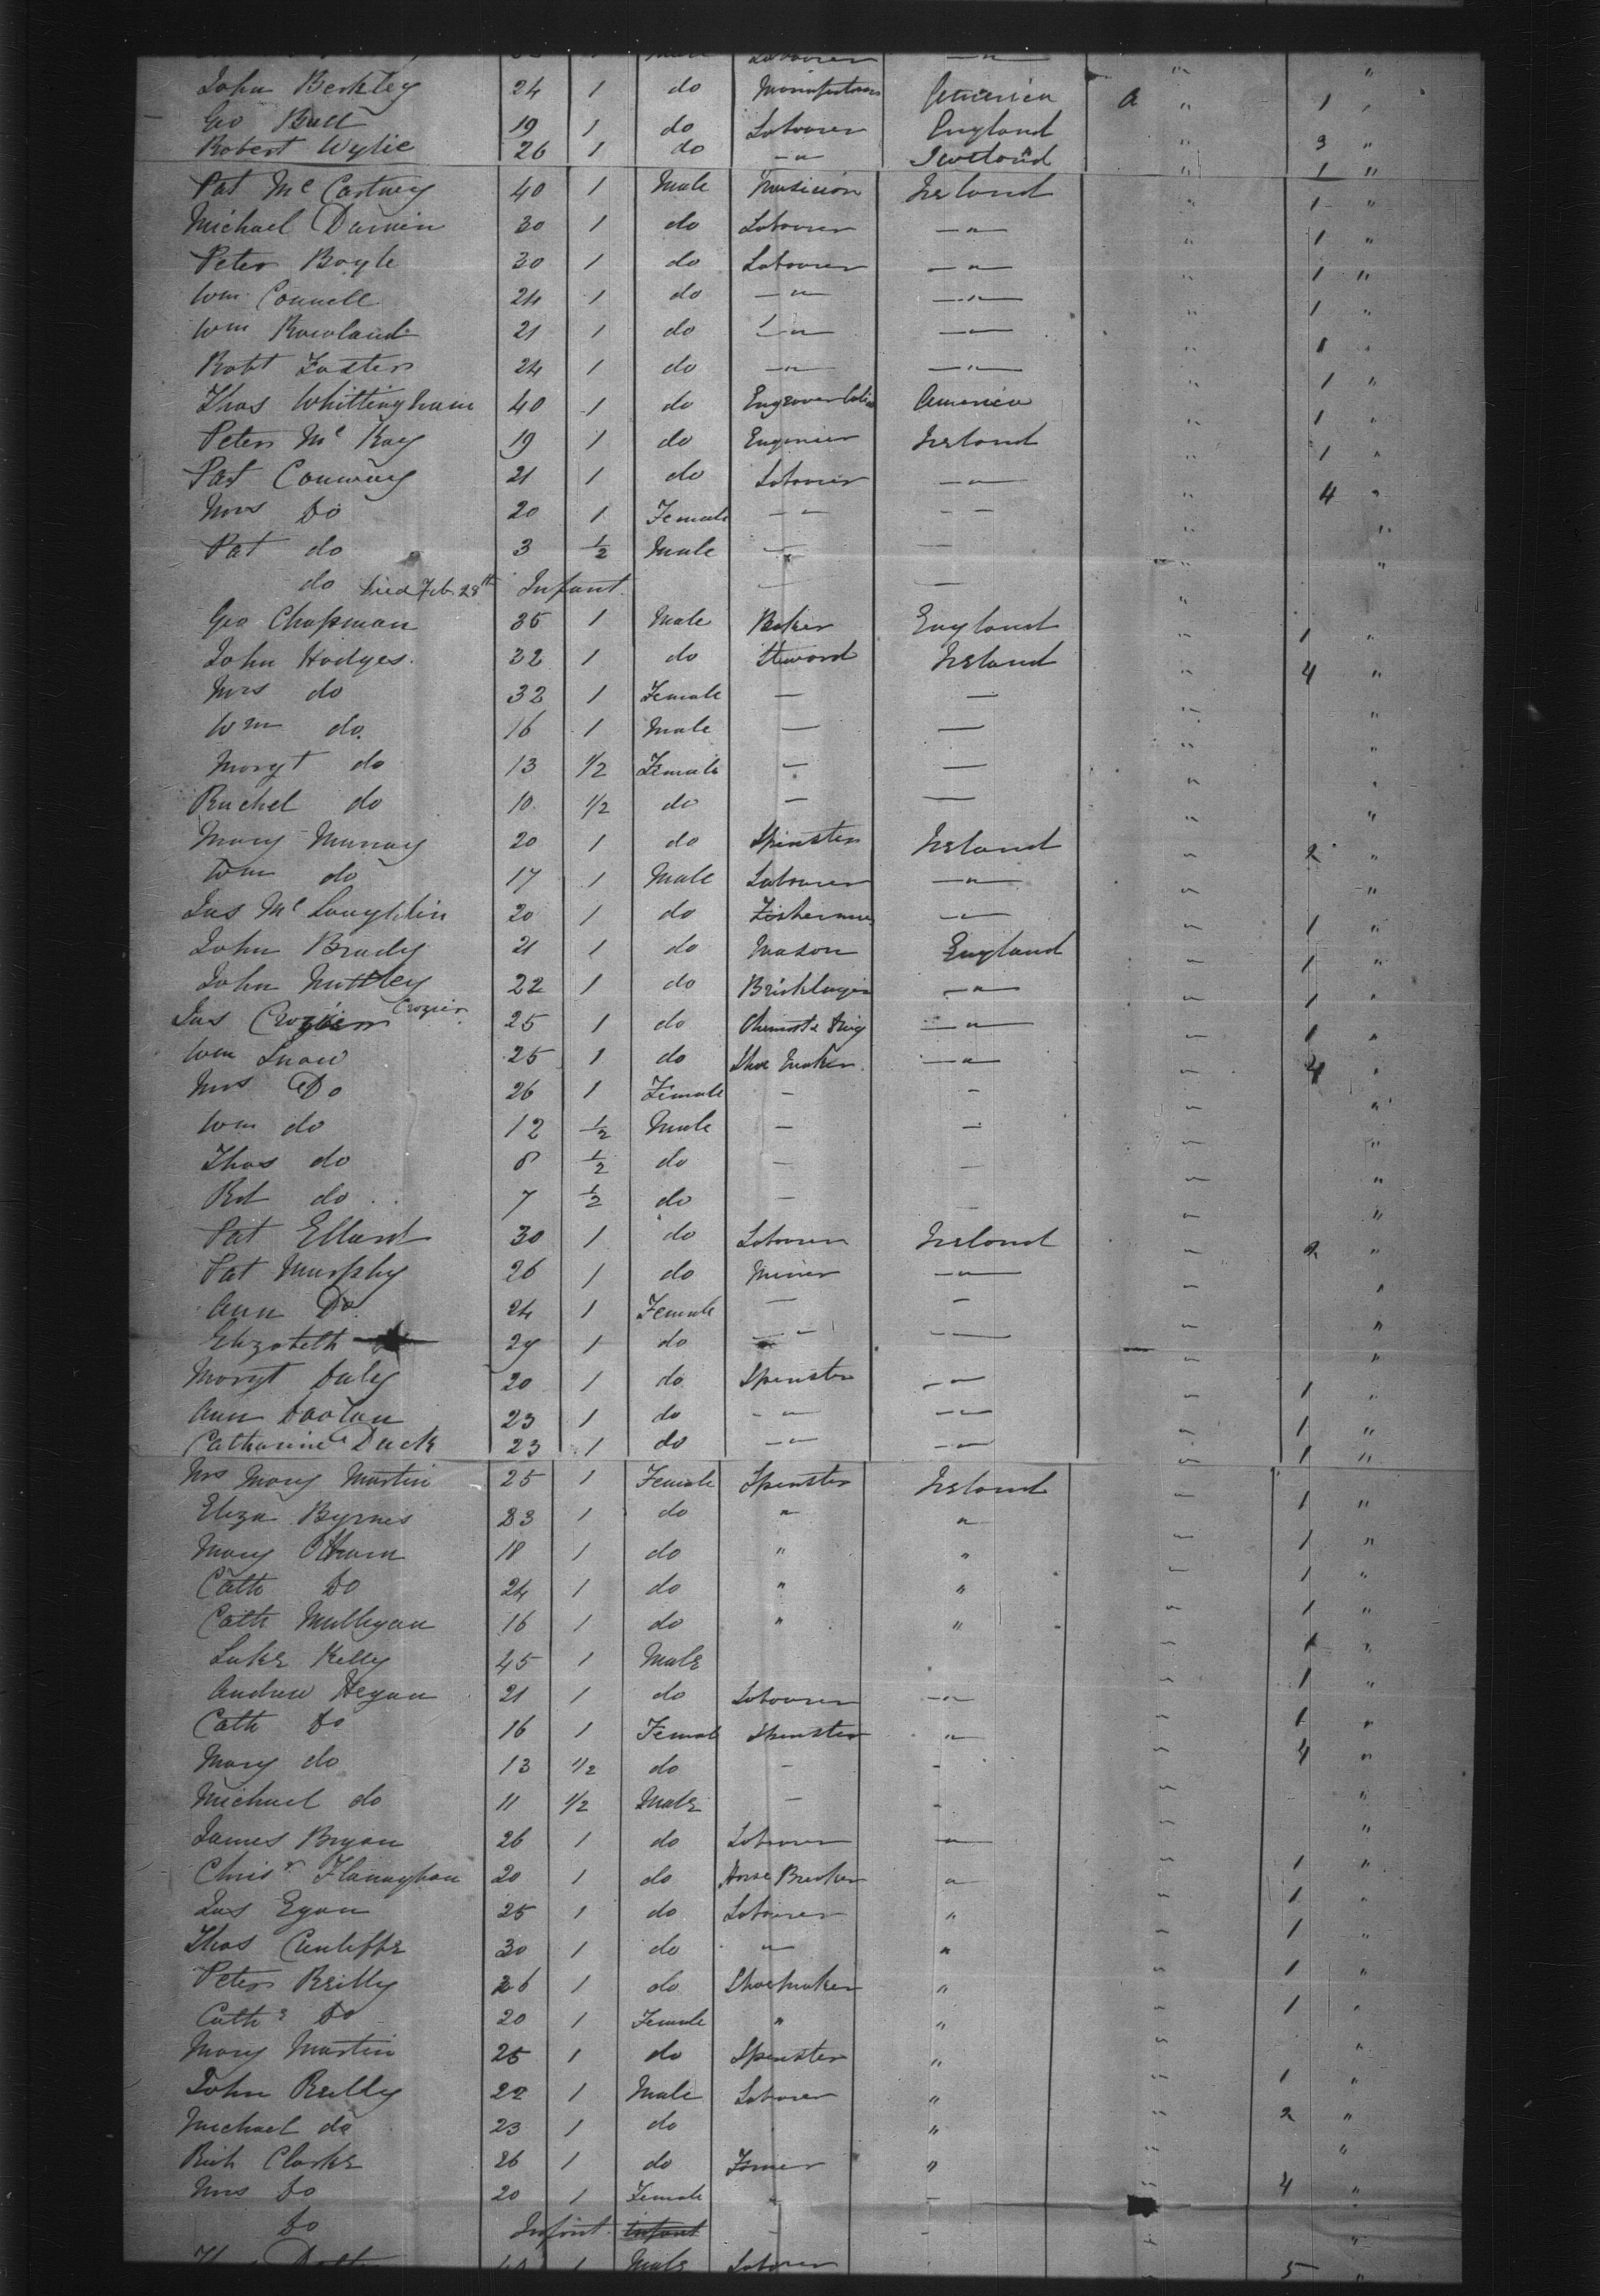 Labourer —"—
John Berkley 24 1 do America a " 1 "
Geo Bull 19 1 do Labourer England " 3 "
Robert Wylie 26 1 do —"— Scotland " 1 "
Pat Mc Cartney 40 1 Male Musician Ireland " 1 "
Michael 30 1 do Labourer —"— " 1 "
Peter Boyle 30 1 do Labourer —"— " 1 "
Wm Connell 24 1 do —"— —"— " 1 "
Wm Rowland 21 1 do —"— —"— " 1 "
Robt Foster 24 1 do —"— —"— " 1 "
Thos Whittingham 40 1 do Engraver America " 1 "
Peter Mc Kay 19 1 do Engineer Ireland " 1 "
Pat Conway 21 1 do Labourer —"— " 4 "
Mrs Do 20 1 Female —"— — — " "
Pat do 3 1/2 Male — — " "
do Died Feb. 28th Infant — — "
Geo Chapman 35 1 Male Baker England " 1 "
John Hodges 32 1 do Steward Ireland " 4 "
Mrs do 32 1 Female — — " "
Wm do 16 1 Male — — " "
Margt do 13 1/2 Female — — " "
Rachel do 10 1/2 do — — " "
Mary Murray 20 1 do Spinster Ireland " 2 "
Wm do 17 1 Male Labourer —"— " "
Jas Mc Loughlin 20 1 do Fisherman —"— " 1 "
John Brady 21 1 do Mason England " 1 "
John Nuttley 22 1 do Bricklayer —"— " 1 "
Jas Crozier Crozier 25 1 do Chemist & Drug —"— " 1 "
Wm Snow 25 1 do Shoe Maker —"— " 4 "
Mrs Do 26 1 Female — — " "
Wm do 12 1/2 Male — — " "
Thos do 8 1/2 do — — " "
Rot do 7 1/2 do — " "
Pat Ellard 30 1 do Labourer Ireland " 2 "
Pat Murphy 26 1 do Miner —"— " "
Ann Do 24 1 Female — — " "
Elizabeth 29 1 do —"— — — " "
Margt Daley 20 1 do Spinster —"— " 1 "
Ann Doolan 23 1 do —"— —"— " 1 "
Catharine Duck 23 1 do —"— —"— " 1 "
Mrs Mary Martin 25 1 Female Spinster Ireland " 1 "
Eliza Byrnes 23 1 do " " " 1 "
Mary 18 1 do " " " 1 "
Cath Do 24 1 do " " " 1 "
Cath Mulligan 16 1 do " " " 1 "
Luke Kelly 45 1 Male " 1 "
Andrew Hegan 21 1 do Labourer —"— " 1 "
Cath Do 16 1 Female Spinster " " 4 "
Mary do 13 1/2 do — - " "
Michael do 11 1/2 Male — - " "
James Bryan 26 1 do Labourer —"— " 1 "
Chrisr Flanaghan 20 1 do Horse Breaker " " 1 "
Jas Egan 25 1 do Labourer " " 1 "
Thos Cunliffe 30 1 do " " " 1 "
Peter Reilly 26 1 do Shoemaker " " 1 "
Cathe Do 20 1 Female " " " "
Mary Martin 25 1 do Spinster " " 1 "
John Reilly 22 1 Male Laborer " " 2 "
Michael do 23 1 do " " "
Rich Clarke 26 1 do " " 4 "
Mrs Do 20 1 Female " — " "
Do Infant Infant — - " "
1 Male Laborer " 5 "